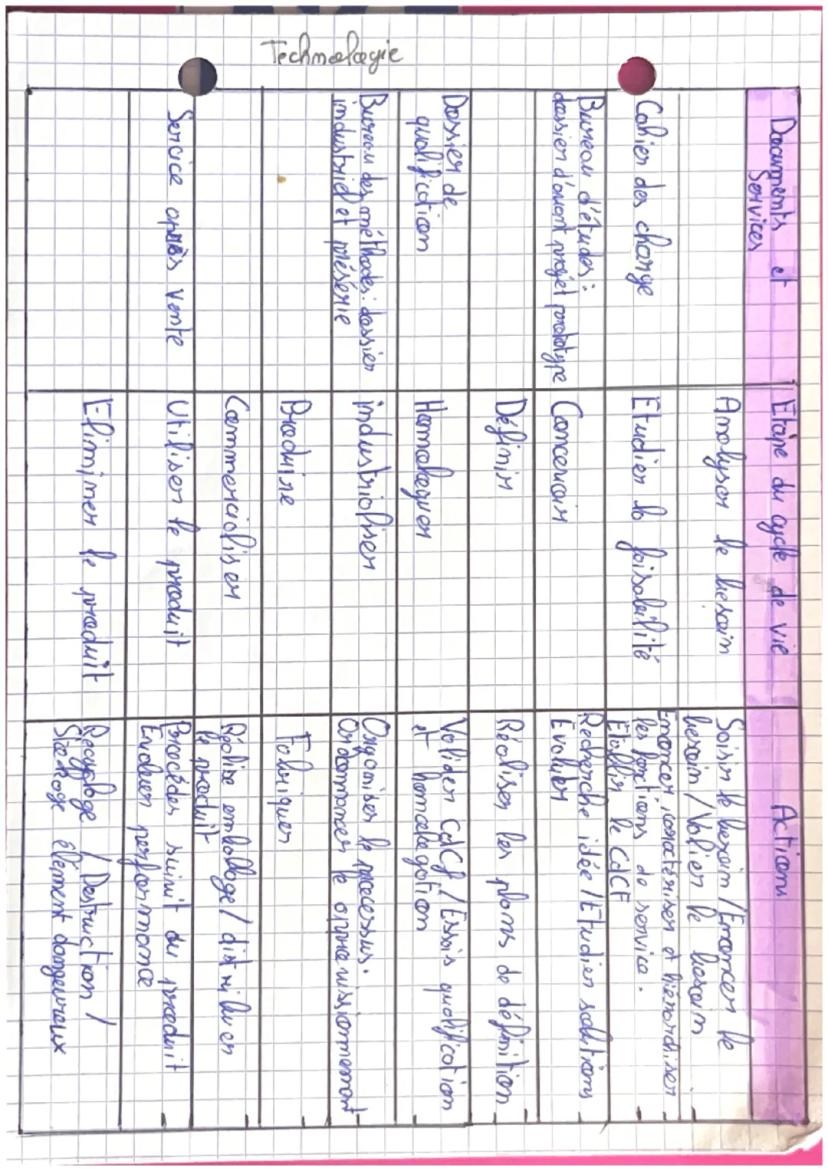 Technologie
Documents et
Services
Etape du cycle de vie
Actions
Analyser le besoin
Saisir le besoin / Enoncer le
besoin / Valier le besoin
Cahier des change
Etudier la faisabilité
Enoncer, caractériser et hiérarchiser
les fonctions de service.
Etablir le CdCF
Bureau d'études :
dossier d'avant projet prototype
Concevoir
Recherche idée / Etudier solutions
Evaluer
Définir
Réaliser les plans de définition
Dossier de
qualification
Homologuer
Valider CdCf / Essais qualification
et homologation
Bureau des méthodes: dossier
industriel et présérie
industrialiser
Organiser le processus.
Ordonnancer le
Produire
Fabriquer
Commercialiser
Réalise emballage / distribuer
le produit
Service après vente
Utiliser le produit
Procédés suivit du produit
Evaluer performance
Eliminer le produit
Recyclage / Destruction /
Stockage élément dangeureux